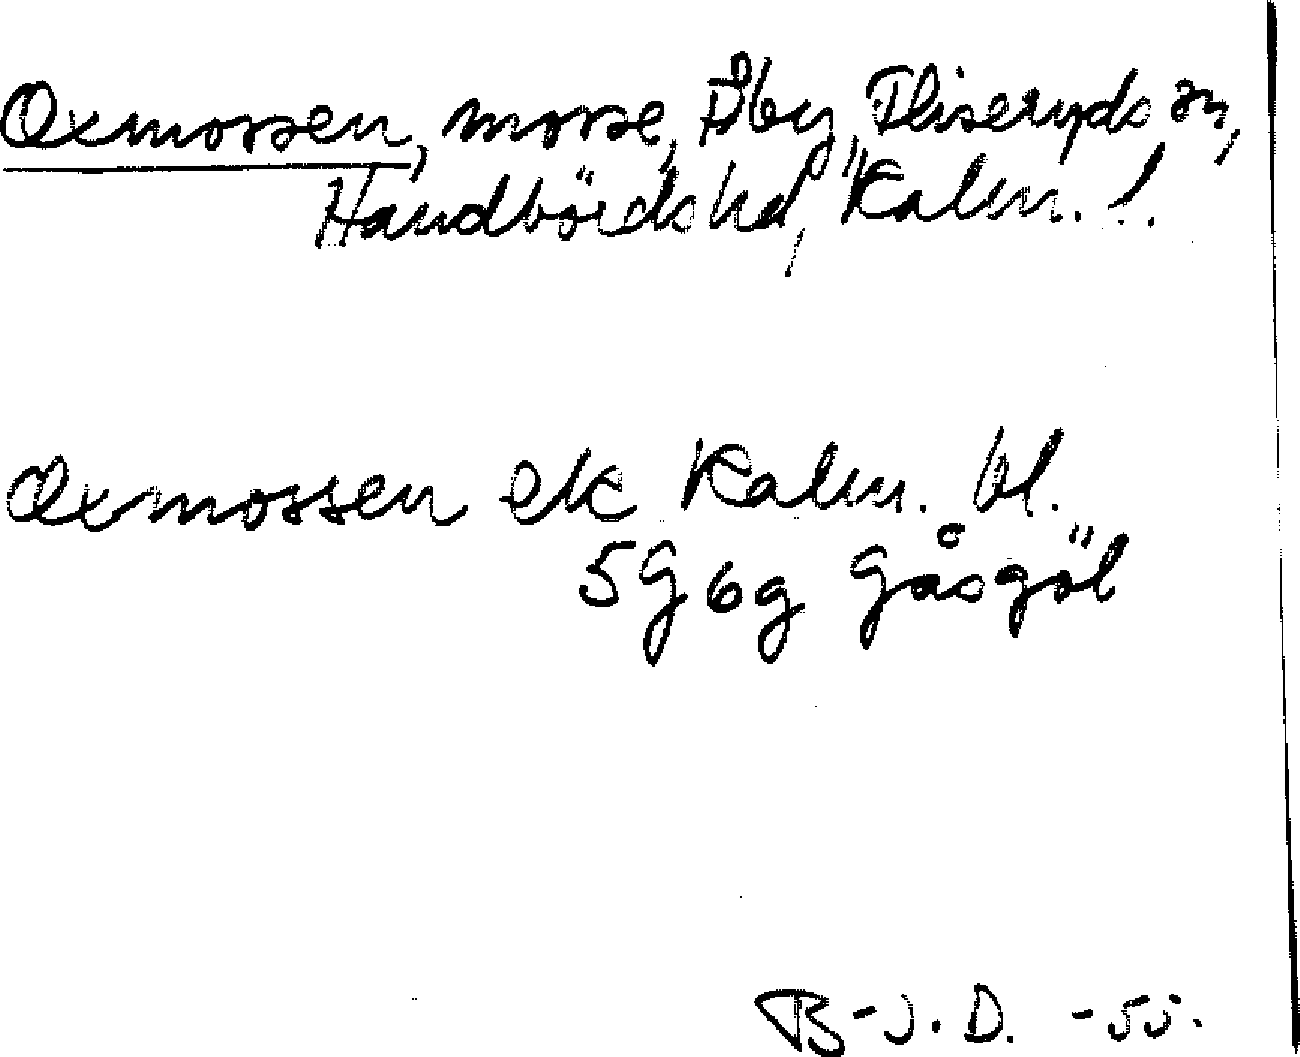 Oxmossen, mosse, Åby, Fliseryds sn,
Handbörds hd, Kalm. l.
Oxmossen ek Kalm. bl.
5G6g Gåsgöl
B-J. D. -55.